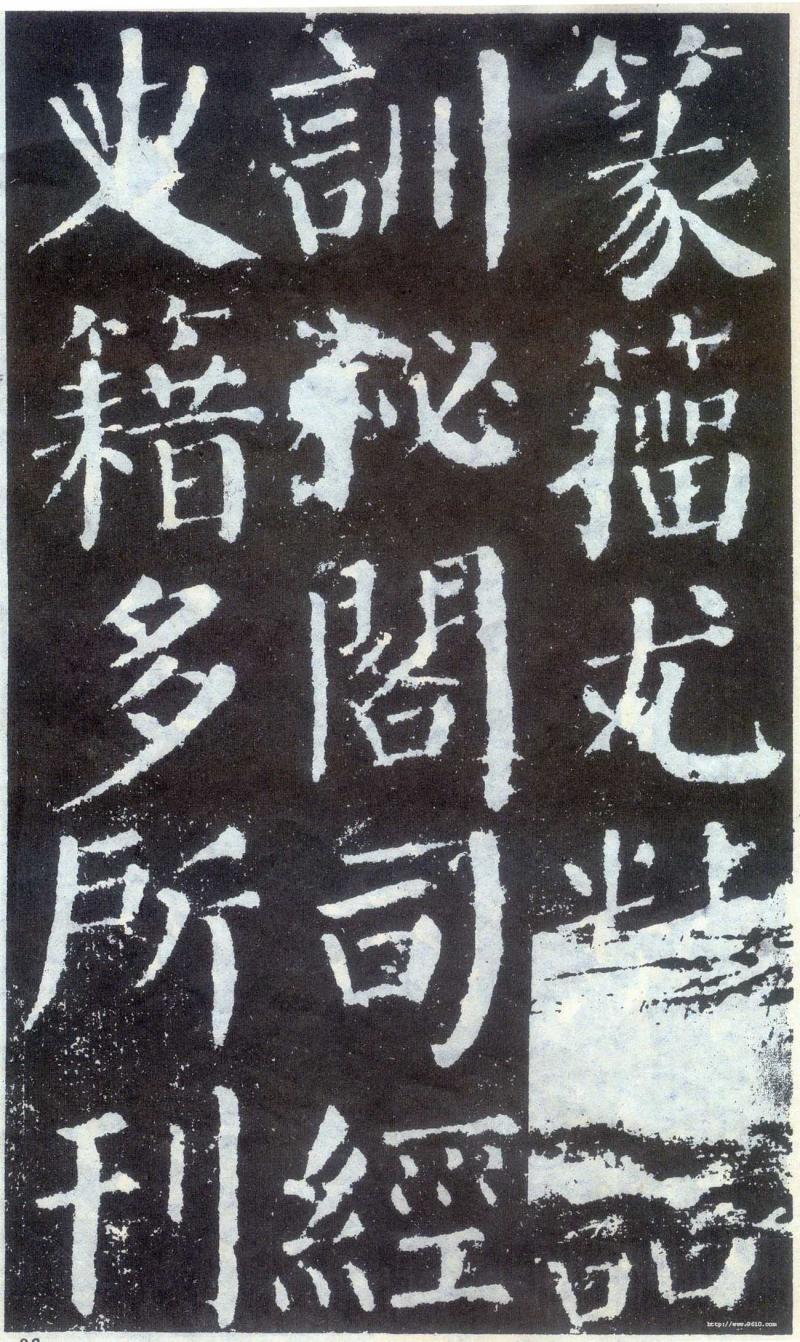 篆籀尤精
訓秘閣司經
史籍多所刊
http://www.9610.com